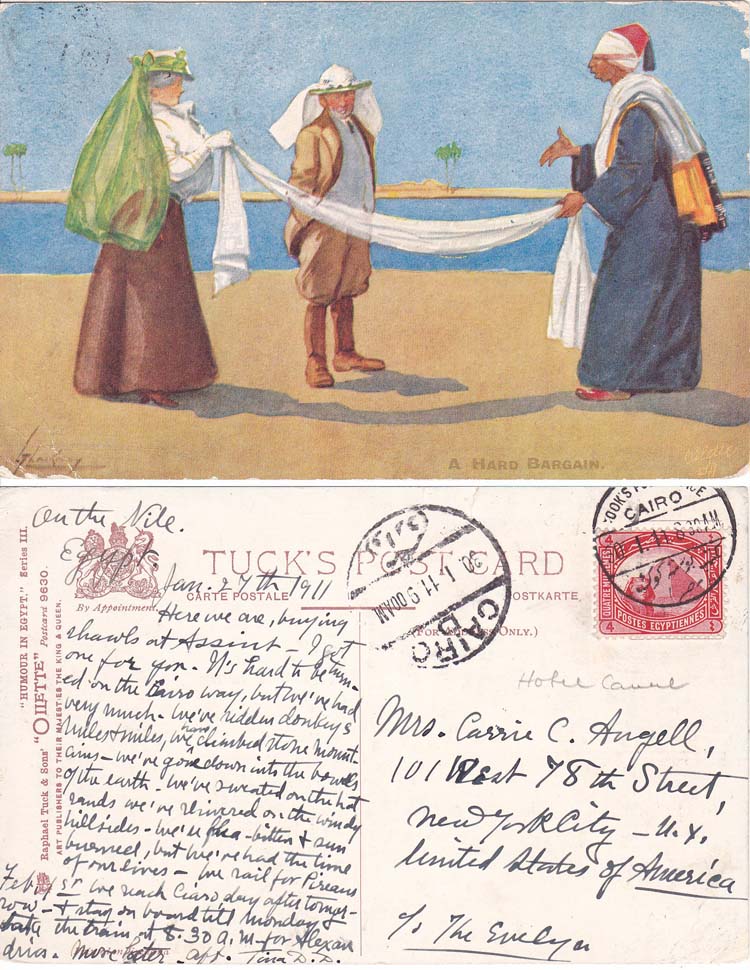 A HARD BARGAIN.
On the Nile.
Egypt.
Jan. 27th 1911
Here we are, buying
shawls at Assint - I got
one for you. It's hard to be turn-
ed on the Cairo way, but we've had
very much - We've ridden donkeys
miles & miles, we have climbed stone mount-
ains - we've gone down into the bowels
of the earth - we've sweated on the hot
sands we've shivered on the windy
hillsides - we're flea-bitten & sun
burned, but we've had the time
of our lives - We sail for Pireaus
Feb. 1st we reach Ciaro day after tomor-
row - & stay on board till Monday
take the train at 8.30 a.m. for Alexan
dria. More later - aff. Tina D.D.
"HUMOUR IN EGYPT." Series III.
Raphael Tuck & Sons' "OILETTE" Postcard 9630.
ART PUBLISHERS TO THEIR MAJESTIES THE KING & QUEEN.
By Appointment.
TUCK'S POST CARD
CARTE POSTALE
POSTKARTE
(FOR ADDRESS ONLY.)
CAIRO
D
30. 1 11 9 00AM
COOK'S POST OFFICE
CAIRO
1. 11 8 30AM
4
4
POSTES EGYPTIENNES
4
4
Mrs. Carrie C. Angell,
101 West 78th Street,
New York City - N.Y.
United States of America
c/o The Evelyn